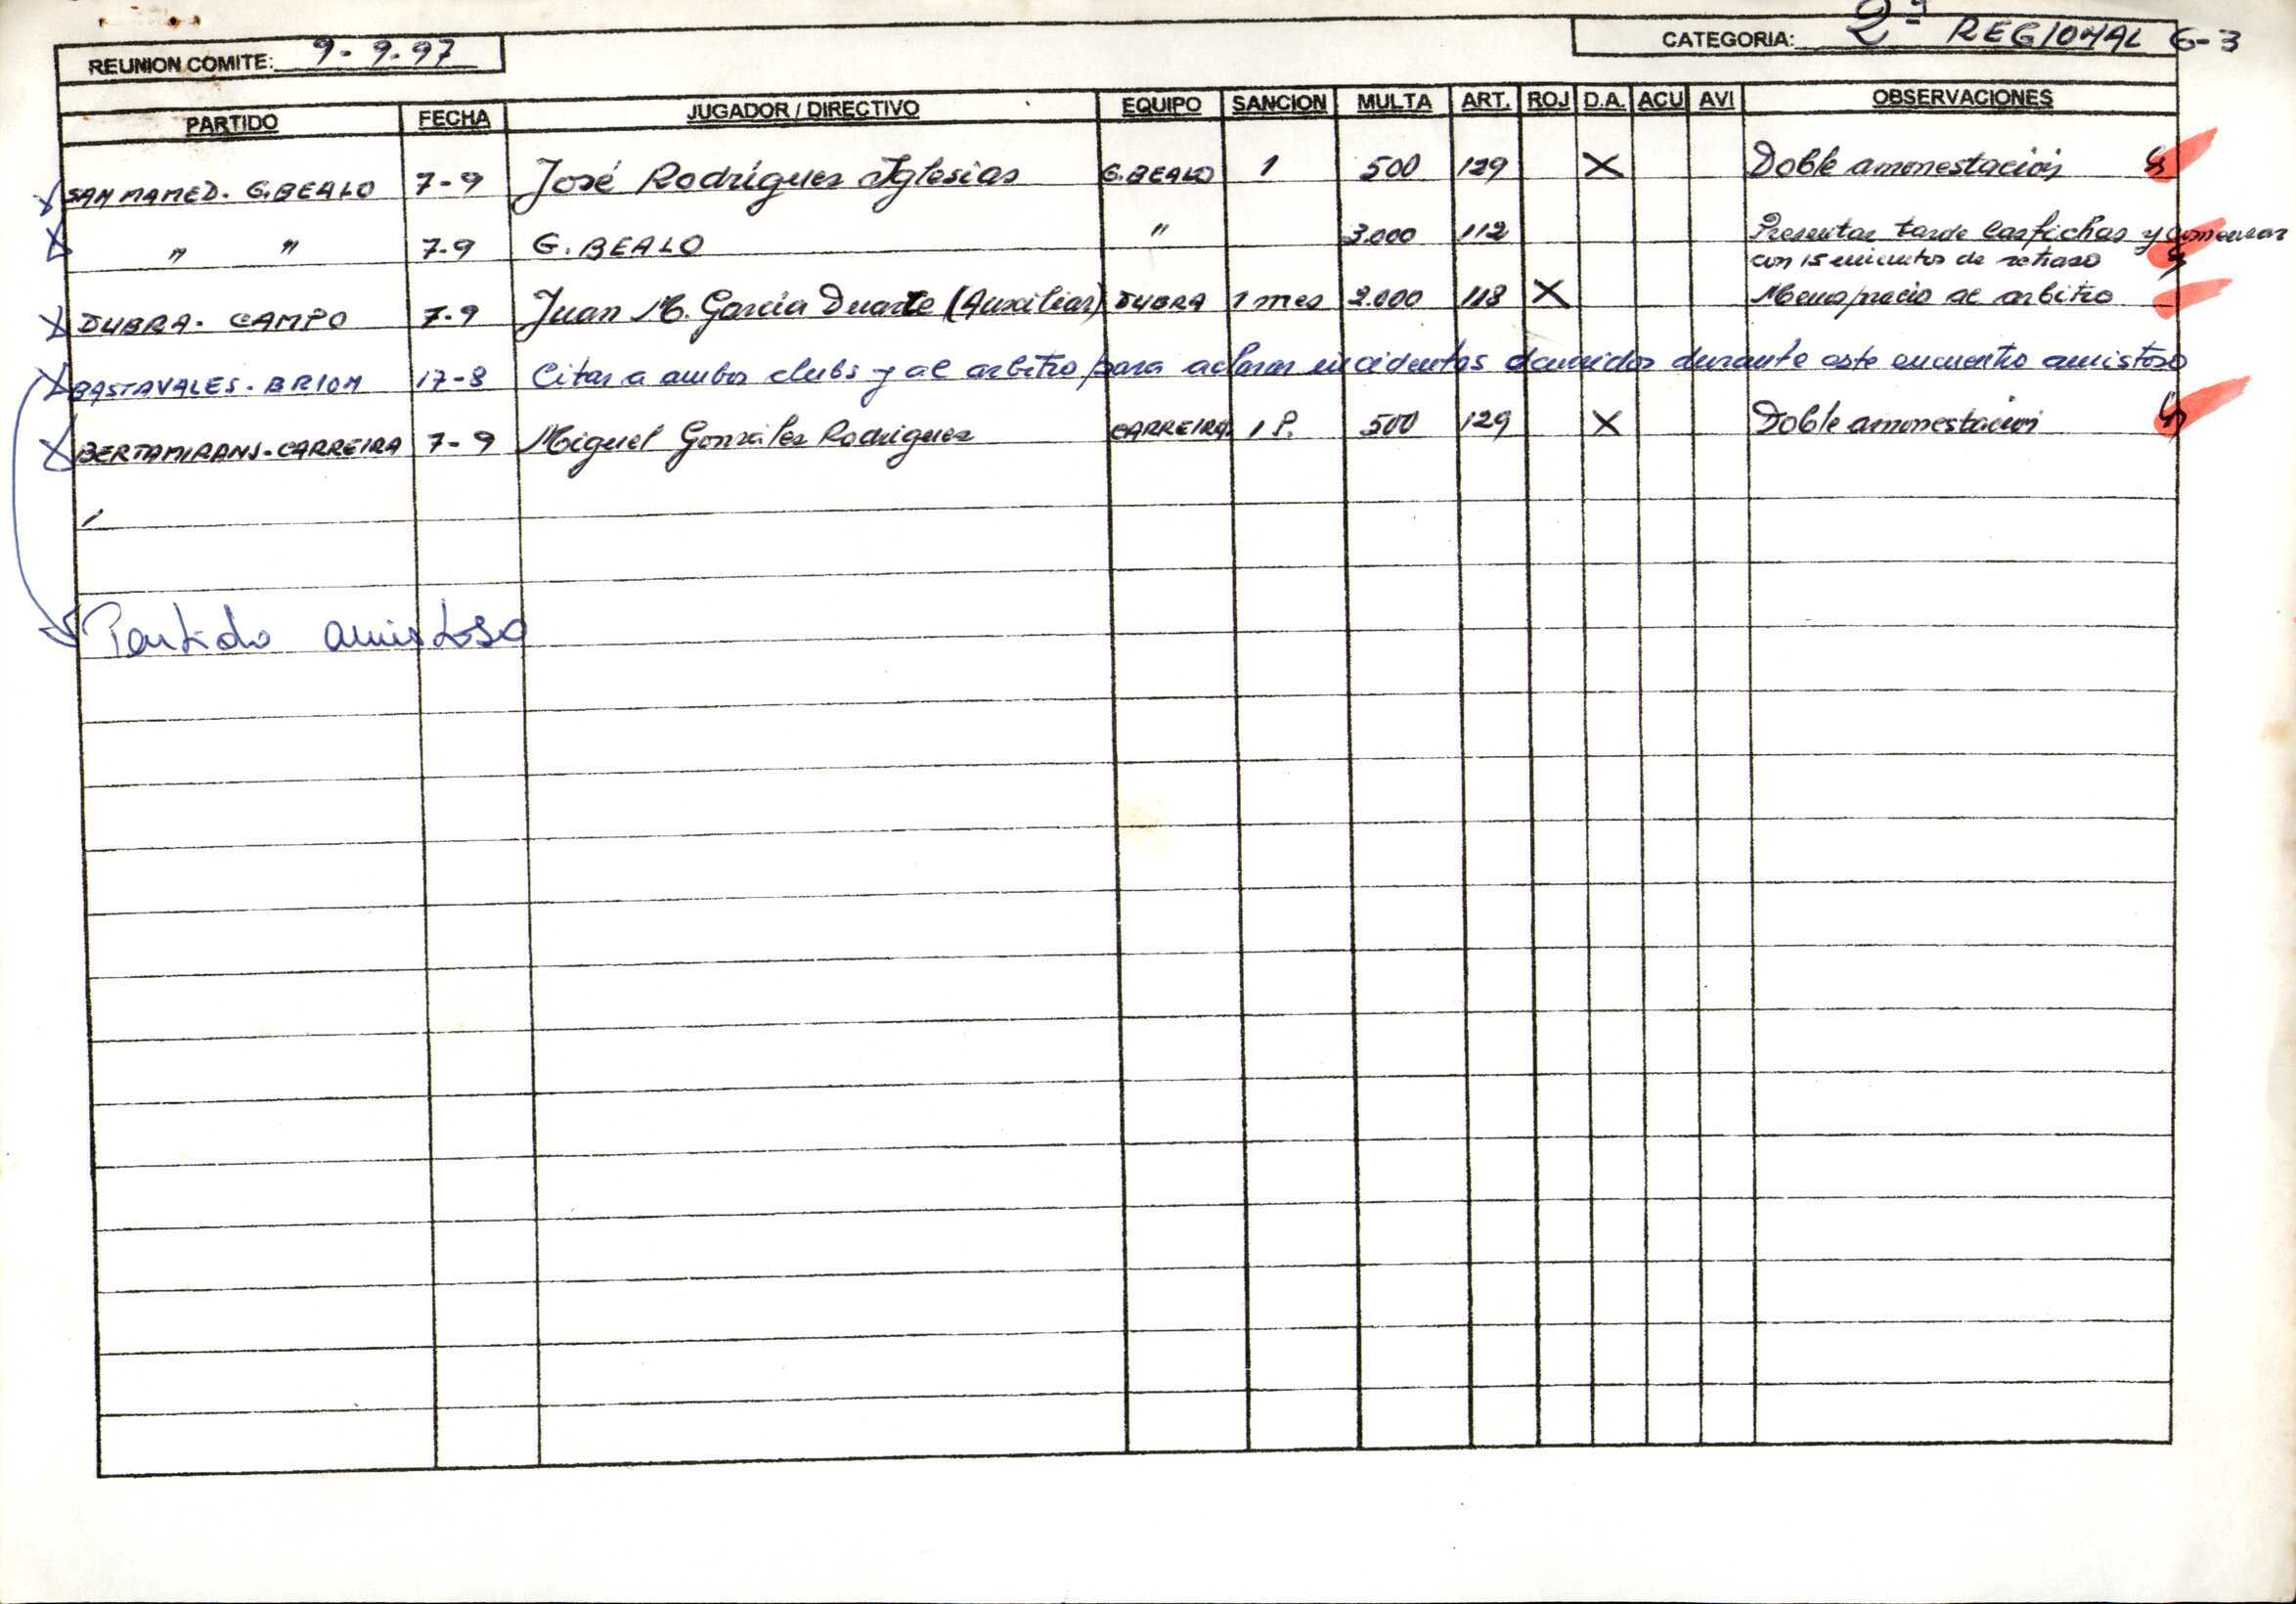 REUNION COMITE: 9-9-97
CATEGORIA: 2ª REGIONAL G-3
PARTIDO FECHA JUGADOR / DIRECTIVO EQUIPO SANCION MULTA ART. ROJ D.A. ACU AVI OBSERVACIONES
SAN MAMED. G.BEALO 7-9 José Rodríguez Iglesias G.BEALO 1 500 129 X Doble amonestación
" " 7-9 G. BEALO " 3.000 112 Presentar tarde las fichas y comenzar
con 15 minutos de retraso
DUBRA. CAMPO 7-9 Juan M. García Duarte (Auxiliar) DUBRA 1 mes 2.000 118 X Menosprecio al arbitro
BASTAVALES. BRION 17-8 Citar a ambos clubs y al arbitro para aclarar incidentes ocurridos durante este encuentro amistoso
BERTAMIRANS-CARREIRA 7-9 Miguel González Rodriguez CARREIRA 1 P. 500 129 X Doble amonestación
Partido amistoso